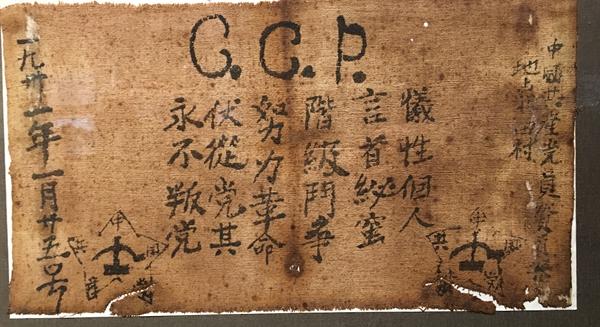 C.C.P.
中國共產党員
地点北田村
犧牲個人
言首秘蜜
階級鬥争
努力革命
伏從党其
永不叛党
一九卅一年一月廿五号